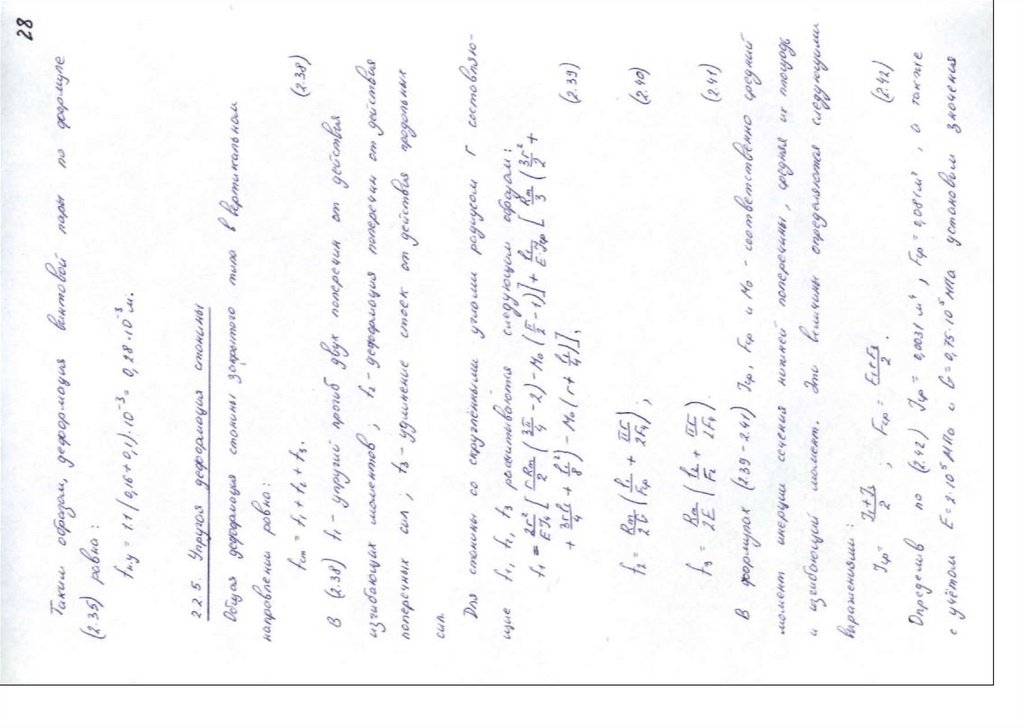 28
Таким образом, деформация винтовой пары по формуле
(2.35) равна:
fну = 1.1(0,16+0,1)·10⁻³ = 0,28·10⁻³ м.
2.2.5. Упругая деформация станины
Общая деформация станины закрытого типа в вертикальном
направлении равна:
fст = f₁ + f₂ + f₃. (2.38)
В (2.38) f₁ - упругий прогиб двух поперечин от действия
изгибающих моментов; f₂ - деформация поперечин от действия
поперечных сил; f₃ - удлинение стоек от действия продольных
сил.
Для станины со скруглёнными углами радиусом r составляю-
щие f₁, f₂, f₃ рассчитываются следующим образом:
f₁ = 2r²/EJ₀ [r·Rm/2 (3π/4 - 2) - M₀(π/2 - 1)] + l₁/EJср [Rm/3 (3r²/2 +
+ 3rl₁/4 + l₁²/8) - M₀(r + l₁/4)], (2.39)
f₂ = Rm/2G (l₁/Fср + πr/2F₄); (2.40)
f₃ = Rm/2E (l₂/F₂ + πr/2F₄). (2.41)
В формулах (2.39-2.41) Jср, Fср и M₀ - соответственно средний
момент инерции сечения нижней поперечины, средняя их площадь
и изгибающий момент. Эти величины определяются следующими
выражениями:
Jср = J₁+J₃/2 ; Fср = F₁+F₃/2 . (2.42)
Определив по (2.42) Jср = 0,0031 м⁴, Fср = 0,081 м², а также
с учётом E = 2·10⁵ МПа и G = 0,75·10⁵ МПа установим значения